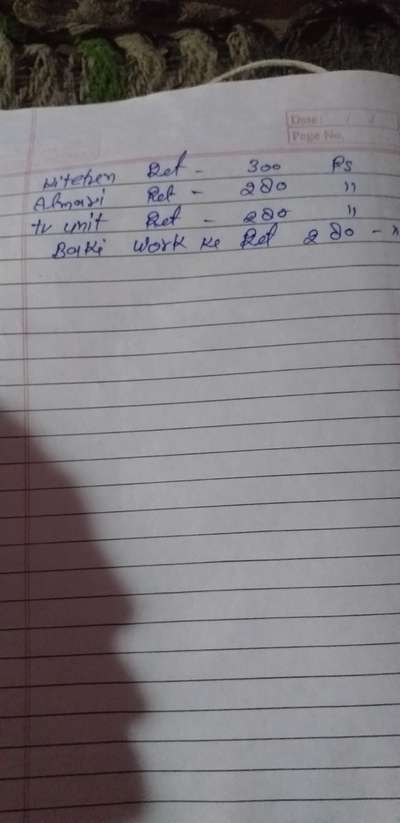 Date: / /
Page No.
Kitchen Ret - 300 Rs
Almari Ret - 280 "
tv unit Ret - 280 "
Baki work ke Ret 280 - "